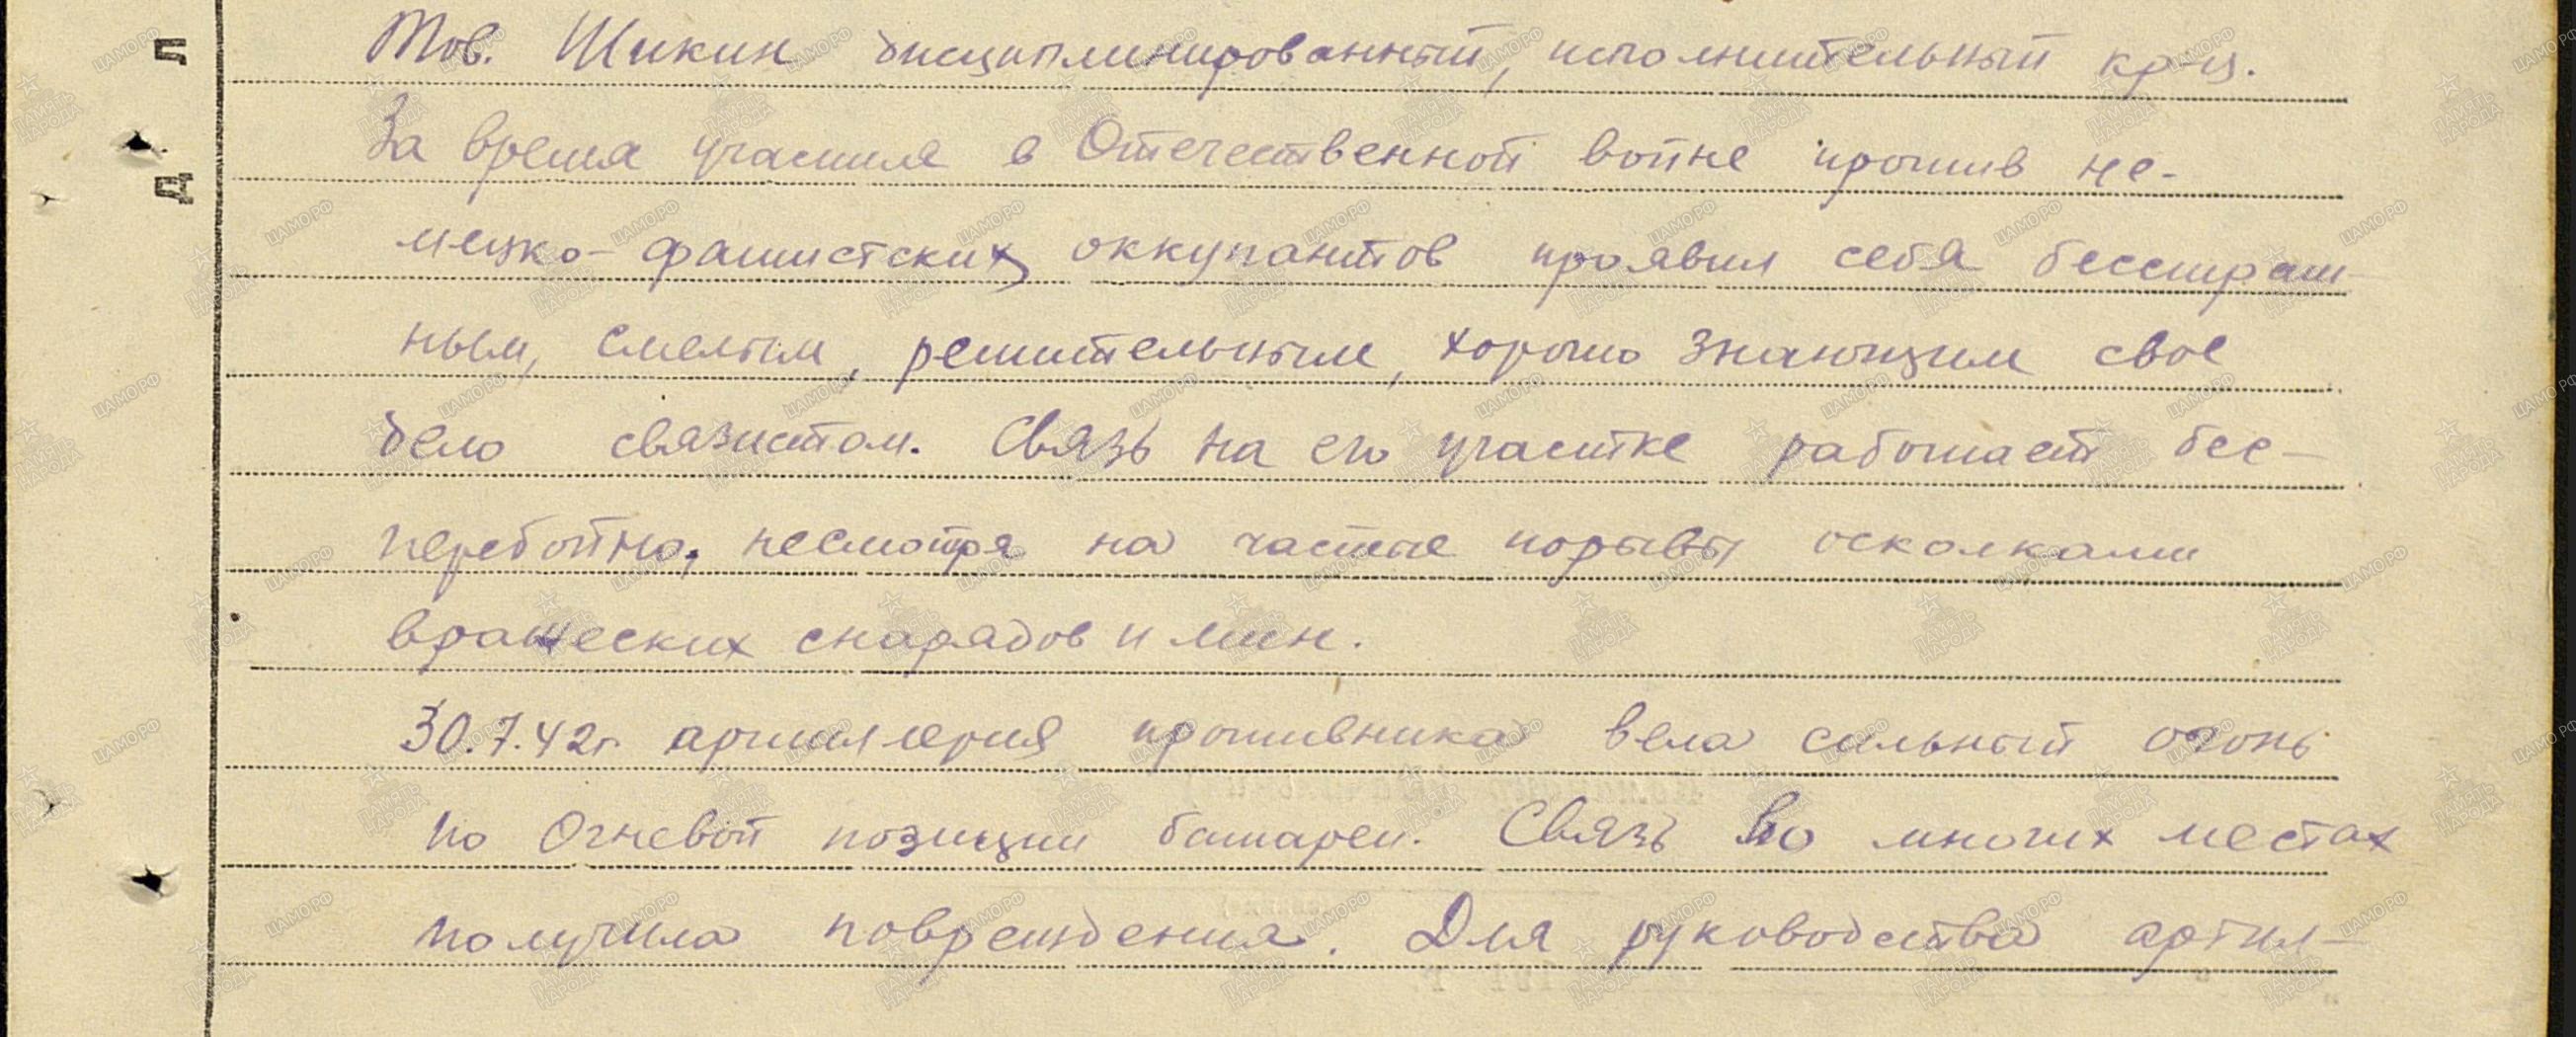 Тов. Шикин дисциплинированный, исполнительный кр-ц.
За время участия в Отечественной войне против не-
мецко-фашистских оккупантов проявил себя бесстраш-
ным, смелым, решительным, хорошо знающим свое
дело связистом. Связь на его участке работает бес-
перебойно, несмотря на частые порывы осколками
вражеских снарядов и мин.
30.7.42г. артиллерия противника вела сильный огонь
по Огневой позиции батареи. Связь во многих местах
получила повреждения. Для руководства артил-